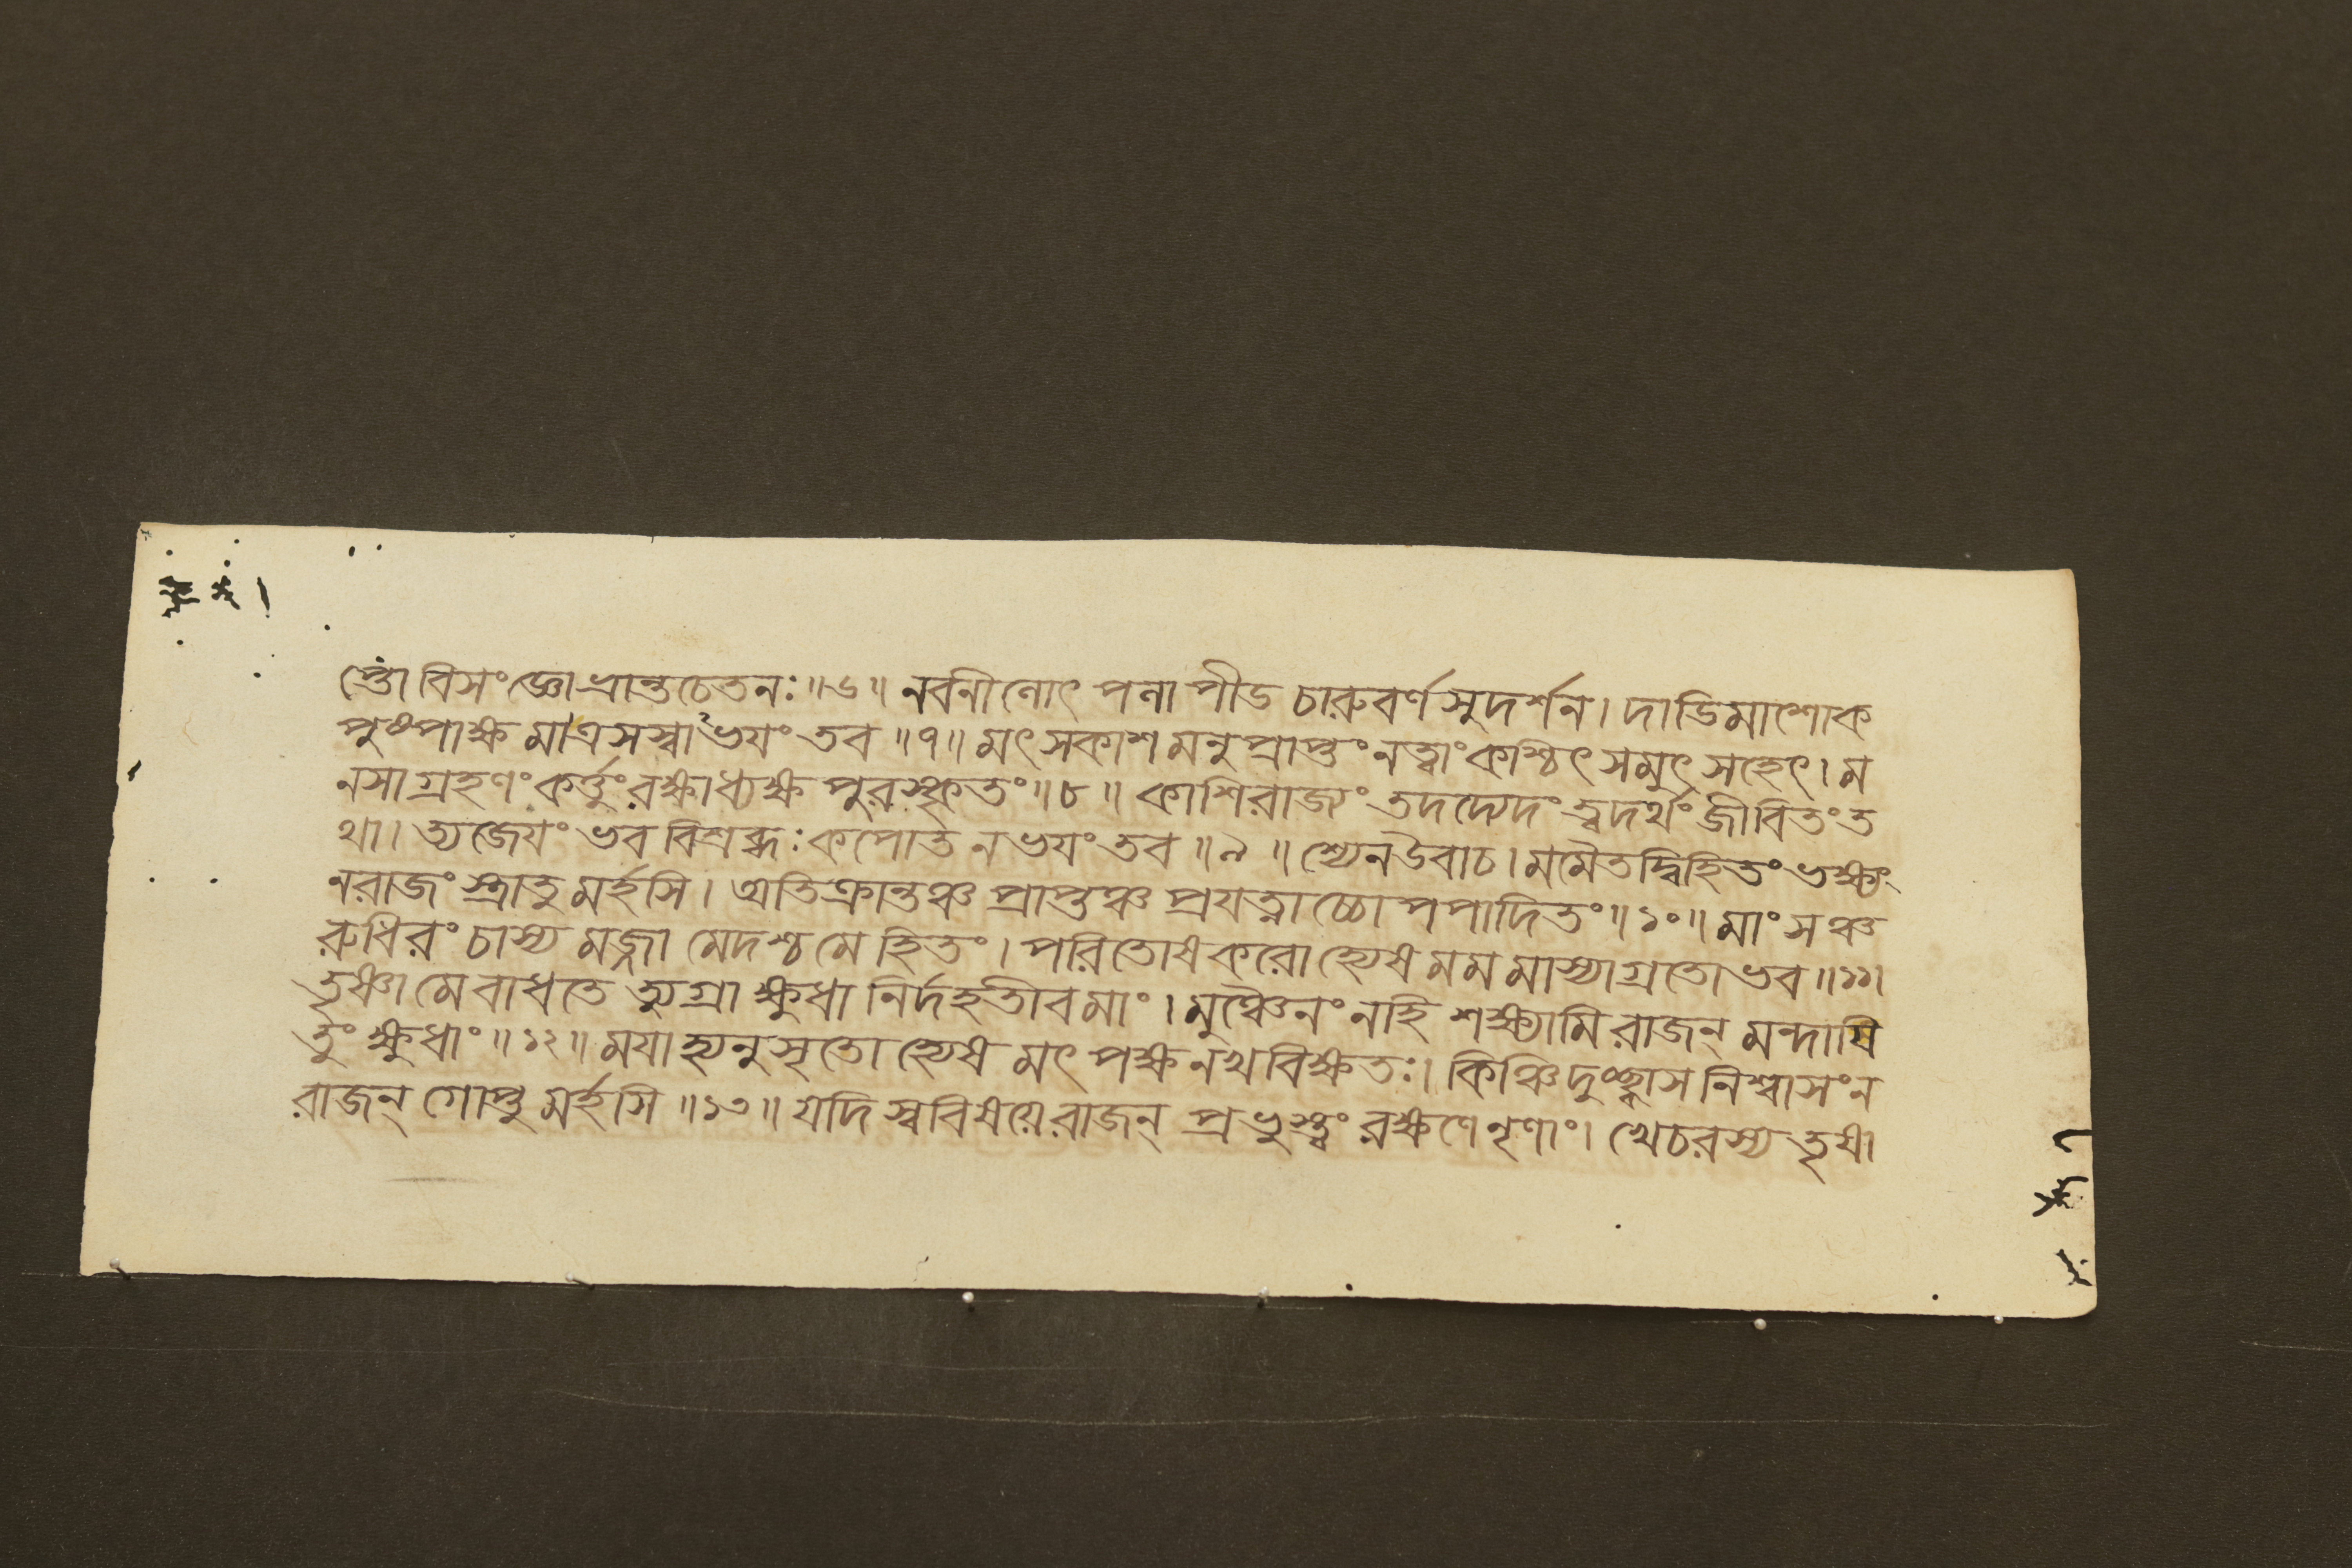 প্তো বিসংজ্ঞোভ্রান্তচেতনঃ॥৬॥ নবনীনোৎ পনাপীড চারুবর্ণ সুদর্শন। দাডিমাশোক
পুষ্পাক্ষ মাত্রসস্বাভয়ং তব ॥৭॥ মৎসকাশ মনুপ্রাপ্তং নত্বাং কশ্চিৎ সমুৎসহেৎ। ম
নসাগ্রহণং কর্ত্তুং রক্ষাধ্যক্ষ পুরস্কৃতং॥৮॥ কাশিরাজ্যং তদদ্যেদং ত্বদর্থং জীবিতং ত
থা। ত্যজেয়ং ভব বিশ্রব্ধঃ কপোত ন ভয়ং তব ॥৯॥ শ্যেনউবাচ। মমৈতদ্বিহিতং ভক্ষ্যং
নরাজংস্ত্রাতু মর্হসি। অতিক্রান্তঞ্চ প্রাপ্তঞ্চ প্রযত্নাচ্চোপপাদিতং॥১০॥ মাংসঞ্চ
রুধিরং চাস্য মজ্জা মেদশ্চ মে হিতং। পরিতোষকরোহ্যেষ মম মাস্যাগ্রতো ভব॥১১।
তৃষ্ণা মে বাধতে ত্যুগ্রা ক্ষুধা নির্দহতীব মাং। মুঞ্চৈনং নহি শক্ষ্যামি রাজন্ মন্দায়ি
তুং ক্ষুধাং॥১২॥ ময়াহ্যনুসৃতো হ্যেষ মৎ পক্ষনখবিক্ষতঃ। কিঞ্চিদুচ্ছ্বাস নিশ্বাসং ন
রাজন্ গোপ্তু মর্হসি॥১৩॥ যদি স্ববিষয়ে রাজন্ প্রভুস্ত্বং রক্ষণে নৃণাং। খেচরস্য তৃষা